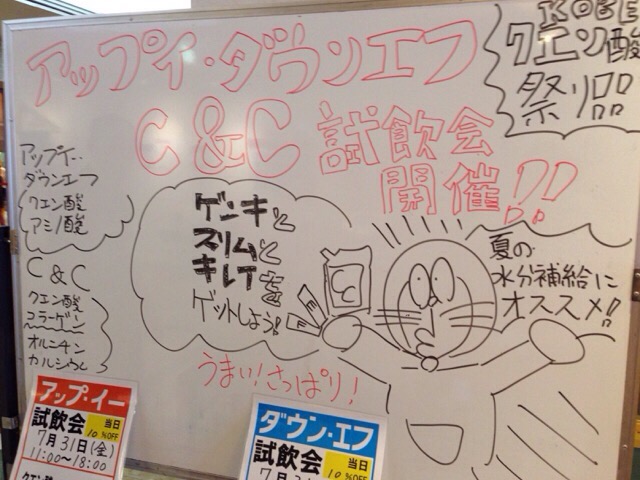 アップイ・ダウンエフ
C&C 試飲会
開催!!
KOBE
クエン酸
祭り品
アップイ・
ダウンエフ
クエン酸
アミノ酸
C&C
クエン酸
コラーゲン
オルニチン
カルシウム
ゲンキと
スリムと
キレイを
ゲットしよう!
C
夏の
水分補給に
オススメ!!
うまい!さっぱり!
アップ・イー
試飲会
当日
10%OFF
7月31日(金)
11:00〜18:00
ダウン・エフ
試飲会
当日
10%OFF